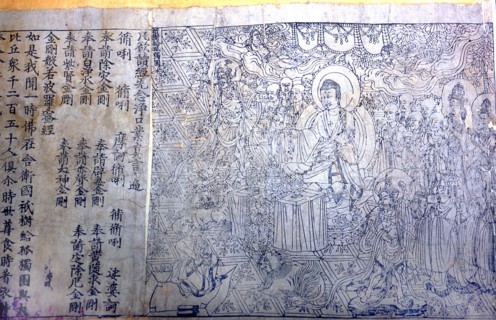 凡欲讀經先念淨口業真言一遍
脩唎 脩唎 摩訶脩唎 脩脩唎 娑婆訶
奉請除災金剛 奉請辟毒金剛 奉請黃隨求金剛
奉請白淨水金剛 奉請赤聲金剛 奉請定除厄金剛
奉請紫賢金剛 奉請大神金剛
金剛般若波羅蜜經
如是我聞一時佛在舍衛國祇樹給孤獨園與
比丘衆千二百五十人俱尒時世尊食時著衣